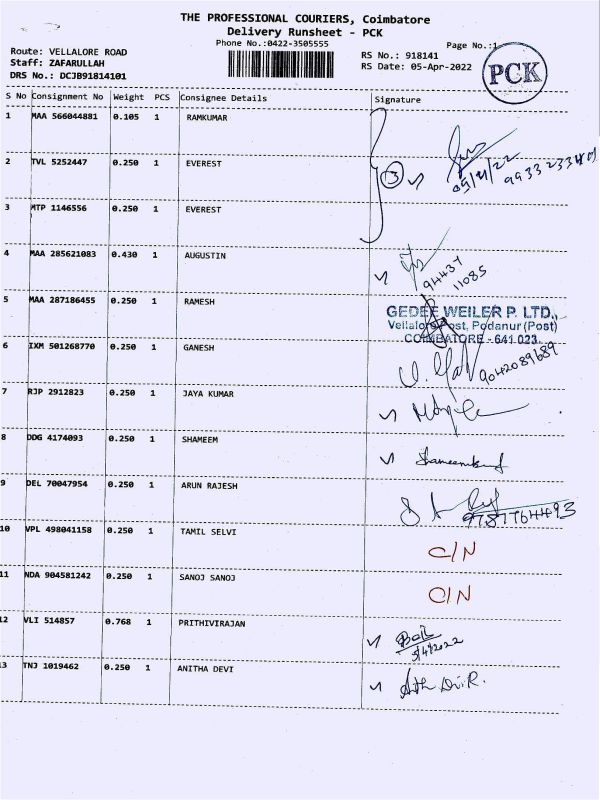 THE PROFESSIONAL COURIERS, Coimbatore
Delivery Runsheet - PCK
Phone No.:0422-3505555
Page No.:1
Route: VELLALORE ROAD
RS No.: 918141
Staff: ZAFARULLAH
RS Date: 05-Apr-2022
DRS No.: DCJB91814101
PCK
S No Consignment No Weight PCS Consignee Details Signature
1 MAA 566044881 0.105 1 RAMKUMAR
05/4/22
2 TVL 5252447 0.250 1 EVEREST
3
3 MTP 1146556 0.250 1 EVEREST
4 MAA 285621083 0.430 1 AUGUSTIN
94437
11085
5 MAA 287186455 0.250 1 RAMESH
GEDEE WEILER P. LTD.,
Vellalore Post, Podanur (Post)
COIMBATORE - 641 023.
6 IXM 501268770 0.250 1 GANESH
9042089689
7 RJP 2912823 0.250 1 JAYA KUMAR
8 DDG 4174093 0.250 1 SHAMEEM
9 DEL 70047954 0.250 1 ARUN RAJESH
9787764493
10 VPL 498041158 0.250 1 TAMIL SELVI
C/N
11 NDA 904581242 0.250 1 SANOJ SANOJ
C/N
12 VLI 514857 0.768 1 PRITHIVIRAJAN
5/4/2022
13 TNJ 1019462 0.250 1 ANITHA DEVI